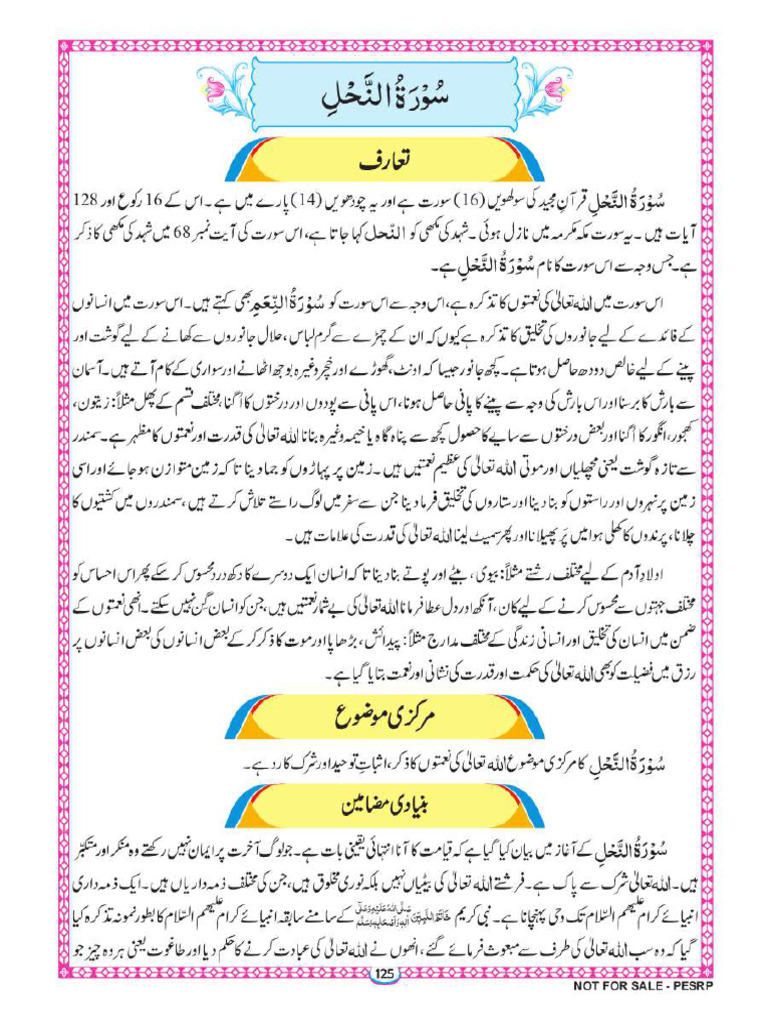 سُوْرَةُ النَّحْلِ
تعارف
سُوْرَةُ النَّحْلِ قرآنِ مجید کی سولھویں (16) سورت ہے اور یہ چودھویں (14) پارے میں ہے۔ اس کے 16 رکوع اور 128
آیات ہیں۔ یہ سورت مکہ مکرمہ میں نازل ہوئی۔ شہد کی مکھی کو النّحل کہا جاتا ہے، اس سورت کی آیت نمبر 68 میں شہد کی مکھی کا ذکر
ہے۔ جس وجہ سے اس سورت کا نام سُوْرَةُ النَّحْلِ ہے۔
اس سورت میں اللہ تعالیٰ کی نعمتوں کا تذکرہ ہے، اس وجہ سے اس سورت کو سُوْرَةُ النِّعَمِ بھی کہتے ہیں۔ اس سورت میں انسانوں
کے فائدے کے لیے جانوروں کی تخلیق کا تذکرہ ہے کیوں کہ ان کے چمڑے سے گرم لباس، حلال جانوروں سے کھانے کے لیے گوشت اور
پینے کے لیے خالص دودھ حاصل ہوتا ہے۔ کچھ جانور جیسا کہ اونٹ، گھوڑے اور خچر وغیرہ بوجھ اٹھانے اور سواری کے کام آتے ہیں۔ آسمان
سے بارش کا برسنا اور اس بارش کی وجہ سے پینے کا پانی حاصل ہونا، اس پانی سے پودوں اور درختوں کا اُگنا، مختلف قسم کے پھل مثلاً: زیتون،
کھجور، انگور کا اُگنا اور بعض درختوں سے سایے کا حصول کچھ سے پناہ گاہ یا خیمہ وغیرہ بنانا اللہ تعالیٰ کی قدرت اور نعمتوں کا مظہر ہے۔ سمندر
سے تازہ گوشت یعنی مچھلیاں اور موتی اللہ تعالیٰ کی عظیم نعمتیں ہیں۔ زمین پر پہاڑوں کو جما دینا تا کہ زمین متوازن ہو جائے اور اسی
زمین پر نہروں اور راستوں کو بنا دینا اور ستاروں کی تخلیق فرما دینا جن سے سفر میں لوگ راستے تلاش کرتے ہیں، سمندروں میں کشتیوں کا
چلانا، پرندوں کا کھلی ہوا میں پَر پھیلانا اور پھر سمیٹ لینا اللہ تعالیٰ کی قدرت کی علامات ہیں۔
اولادِ آدم کے لیے مختلف رشتے مثلاً: بیوی، بیٹے اور پوتے بنا دینا تا کہ انسان ایک دوسرے کا دکھ درد محسوس کر سکے پھر اس احساس کو
مختلف جہتوں سے محسوس کرنے کے لیے کان، آنکھ اور دل عطا فرمانا اللہ تعالیٰ کی بے شمار نعمتیں ہیں، جن کو انسان گِن نہیں سکتے۔ انھی نعمتوں کے
ضمن میں انسان کی تخلیق اور انسانی زندگی کے مختلف مدارج مثلاً: پیدائش، بڑھاپا اور موت کا ذکر کر کے بعض انسانوں کی بعض انسانوں پر
رزق میں فضیلت کو بھی اللہ تعالیٰ کی حکمت اور قدرت کی نشانی اور نعمت بتایا گیا ہے۔
مرکزی موضوع
سُوْرَةُ النَّحْلِ کا مرکزی موضوع اللہ تعالیٰ کی نعمتوں کا ذکر، اثباتِ توحید اور شرک کا رد ہے۔
بنیادی مضامین
سُوْرَةُ النَّحْلِ کے آغاز میں بیان کیا گیا ہے کہ قیامت کا آنا انتہائی یقینی بات ہے۔ جو لوگ آخرت پر ایمان نہیں رکھتے وہ منکر اور متکبّر
ہیں۔ اللہ تعالیٰ شرک سے پاک ہے۔ فرشتے اللہ تعالیٰ کی بیٹیاں نہیں بلکہ نوری مخلوق ہیں، جن کی مختلف ذمہ داریاں ہیں۔ ایک ذمہ داری
انبیائے کرام علیھم السّلام تک وحی پہنچانا ہے۔ نبی کریم خَاتَمُ النَّبِيّٖنَ صَلَّى اللهُ عَلَيْهِ وَعَلٰى اٰلِهٖ وَاَصْحَابِهٖ وَسَلَّمَ کے سامنے سابقہ انبیائے کرام علیھم السّلام کا بطور نمونہ تذکرہ کیا
گیا کہ وہ سب اللہ تعالیٰ کی طرف سے مبعوث فرمائے گئے، انھوں نے اللہ تعالیٰ کی عبادت کرنے کا حکم دیا اور طاغوت یعنی ہر وہ چیز جو
125
NOT FOR SALE - PESRP